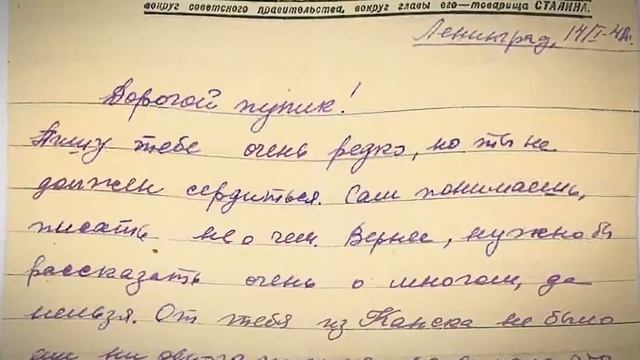 вокруг советского правительства, вокруг главы его—товарища СТАЛИНА.
Ленинград, 14/I-42г.
Дорогой пупик!
Пишу тебе очень редко, но ты не
должен сердиться. Сам понимаешь,
писать не о чем. Вернее, нужно бы
рассказать очень о многом, да
нельзя. От тебя из Канска не было